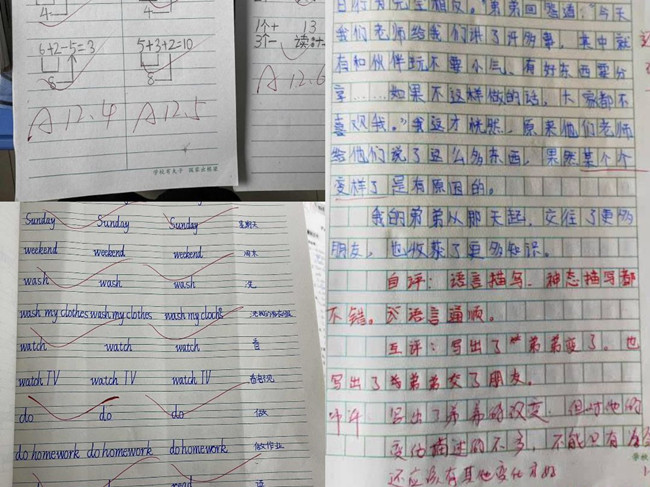 4
4
6+2-5=3
5+3+2=10
8
8
A 12.4
A 12.5
1个+
13
3个-
A 12.6
Sunday Sunday Sunday 星期天
weekend weekend weekend 周末
wash wash wash 洗
wash my clothes wash my clothes wash my clothe
watch watch watch 看
watch TV watch TV watch TV 看电视
do do do 做
do homework do homework do homework 做作业
read
我们老师给我们讲了许多事，其中就
有和伙伴玩不要小气、有好东西要分
享……如果不这样做的话，大家都不
喜欢我。”我这才恍然，原来他们老师
给他们说了这么多东西，果然某个个
变样了是有原因的。
我的弟弟从那天起，交往了更多
朋友，也收获了更多知识。
自评：语言描写、神态描写都
不错。语言通顺。
互评：写出了“弟弟变了。也
写出了弟弟交了朋友。
写出了弟弟的改变，但对他的
变化描述的不多，不能只有
还应该有其他变化才好